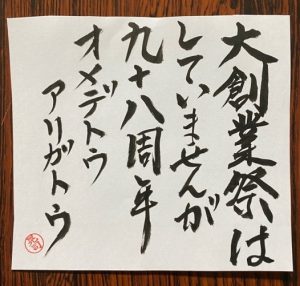 大創業祭は
していませんが
九十八周年
オメデトウ
アリガトウ